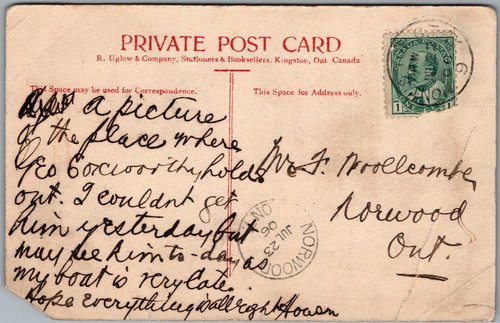 PRIVATE POST CARD
R. Uglow & Company, Stationers & Booksellers, Kingston, Ont Canada.
This Space may be used for Correspondence.
This Space is for Address only.
a picture
of the place where
Geo Boxworthy holds
out. I couldnt get
him yesterday but
may see him to-day as
my boat is very late.
Hope Everything is all right
Mr F. Woollcombe
Norwood
Ont.
NORWOOD
JUL 23
06
ONT